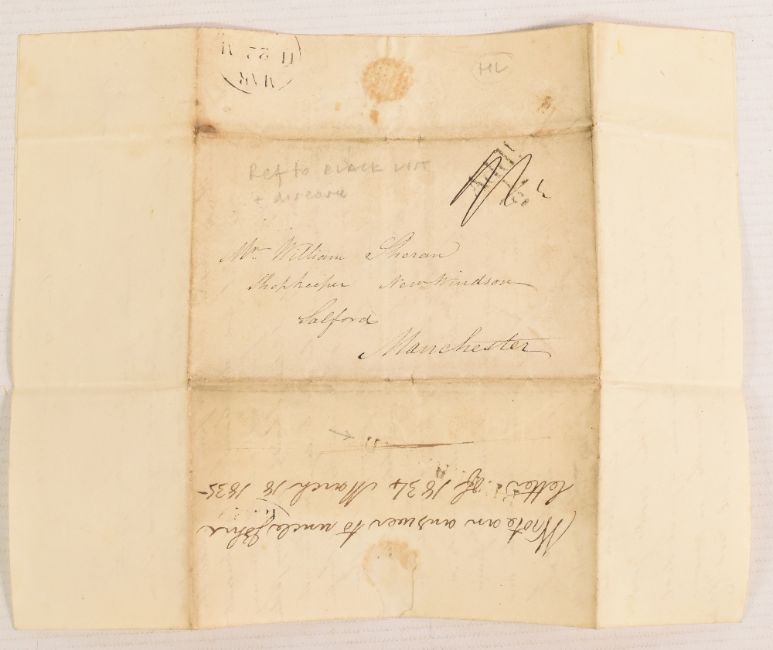 HL
Ref to BLACK LIST
+ disease
Mr William Sheran
Shopkeeper New Windsor
Salford
Manchester
Wrote an answer to uncle John
letter of 1834 March 18 1835
MAR